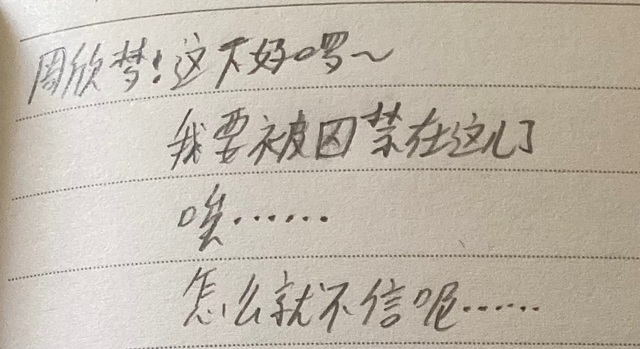 周欣梦!这下好啰~
我要被囚禁在这儿了
唉……
怎么就不信呢……